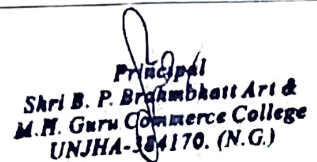 Principal
Shri B. P. Brahmbhatt Art &
M.H. Guru Commerce College
UNJHA-384170. (N.G.)